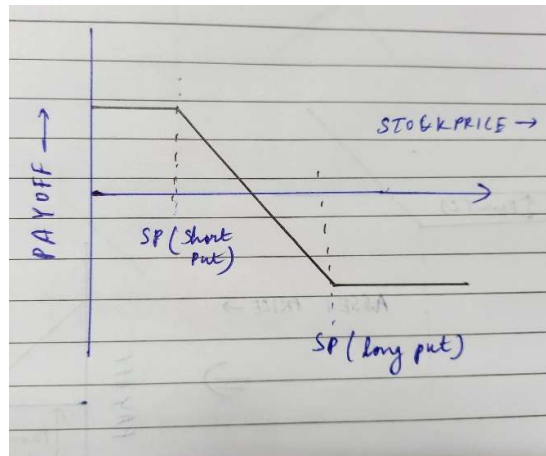 PAYOFF →
STOCKPRICE →
SP (Short
Put)
SP (long put)